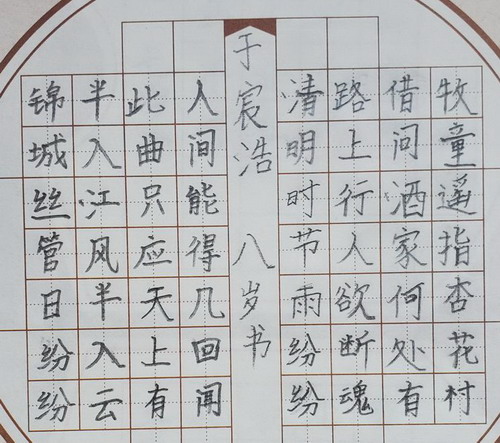 锦城丝管日纷纷
半入江风半入云
此曲只应天上有
人间能得几回闻
于宸浩 八岁书
清明时节雨纷纷
路上行人欲断魂
借问酒家何处有
牧童遥指杏花村